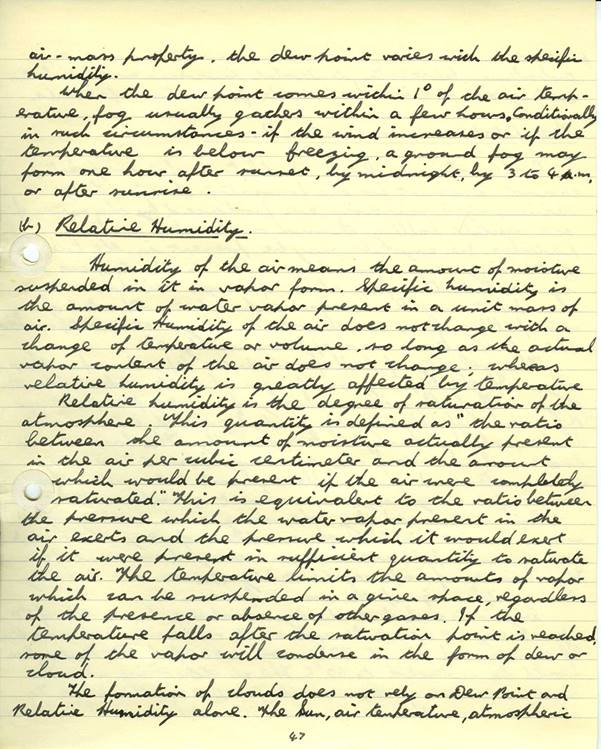 air-mass property, the dew point varies with the specific
humidity.
When the dew point comes within 1° of the air temp-
erature, fog usually gathers within a few hours. Conditionally
in such circumstances - if the wind increases or if the
temperature is below freezig, a ground fog may
form one hour after sunset, by midnight, by 3 to 4 a.m.
or after sunrise.
(b) Relative Humidity.
Humidity of the air means the amount of moistive
suspended in it in vapor form. Specific humidity is
the amount of water vapor present in a unit mass of
air. Specific Humidity of the air does not change with a
change of temperature or volume, so long as the actual
vapor content of the air does not change; whereas
relative humidity is greatly affected by temperature
Relative humidity is the degree of saturation of the
atmosphere. This quantity is defined as "the ratio
between the amount of moisture actually present
in the air per cubic centimeter and the amount
which would be present if the air were completely
saturated." This is equivalent to the ratio between
the pressure which the water vapor present in the
air exerts and the pressure which it would exert
if it were present in sufficient quantity to saturate
the air. The temperature limits the amounts of vapor
which can be suspended in a given space, regardless
of the presence or absence of other gases. If the
temperature falls after the saturation point is reached,
some of the vapor will condense in the form of dew or
cloud.
The formation of clouds does not rely on Dew Point and
Relative Humidity alone. The Sun, air temperature, atmospheric
47